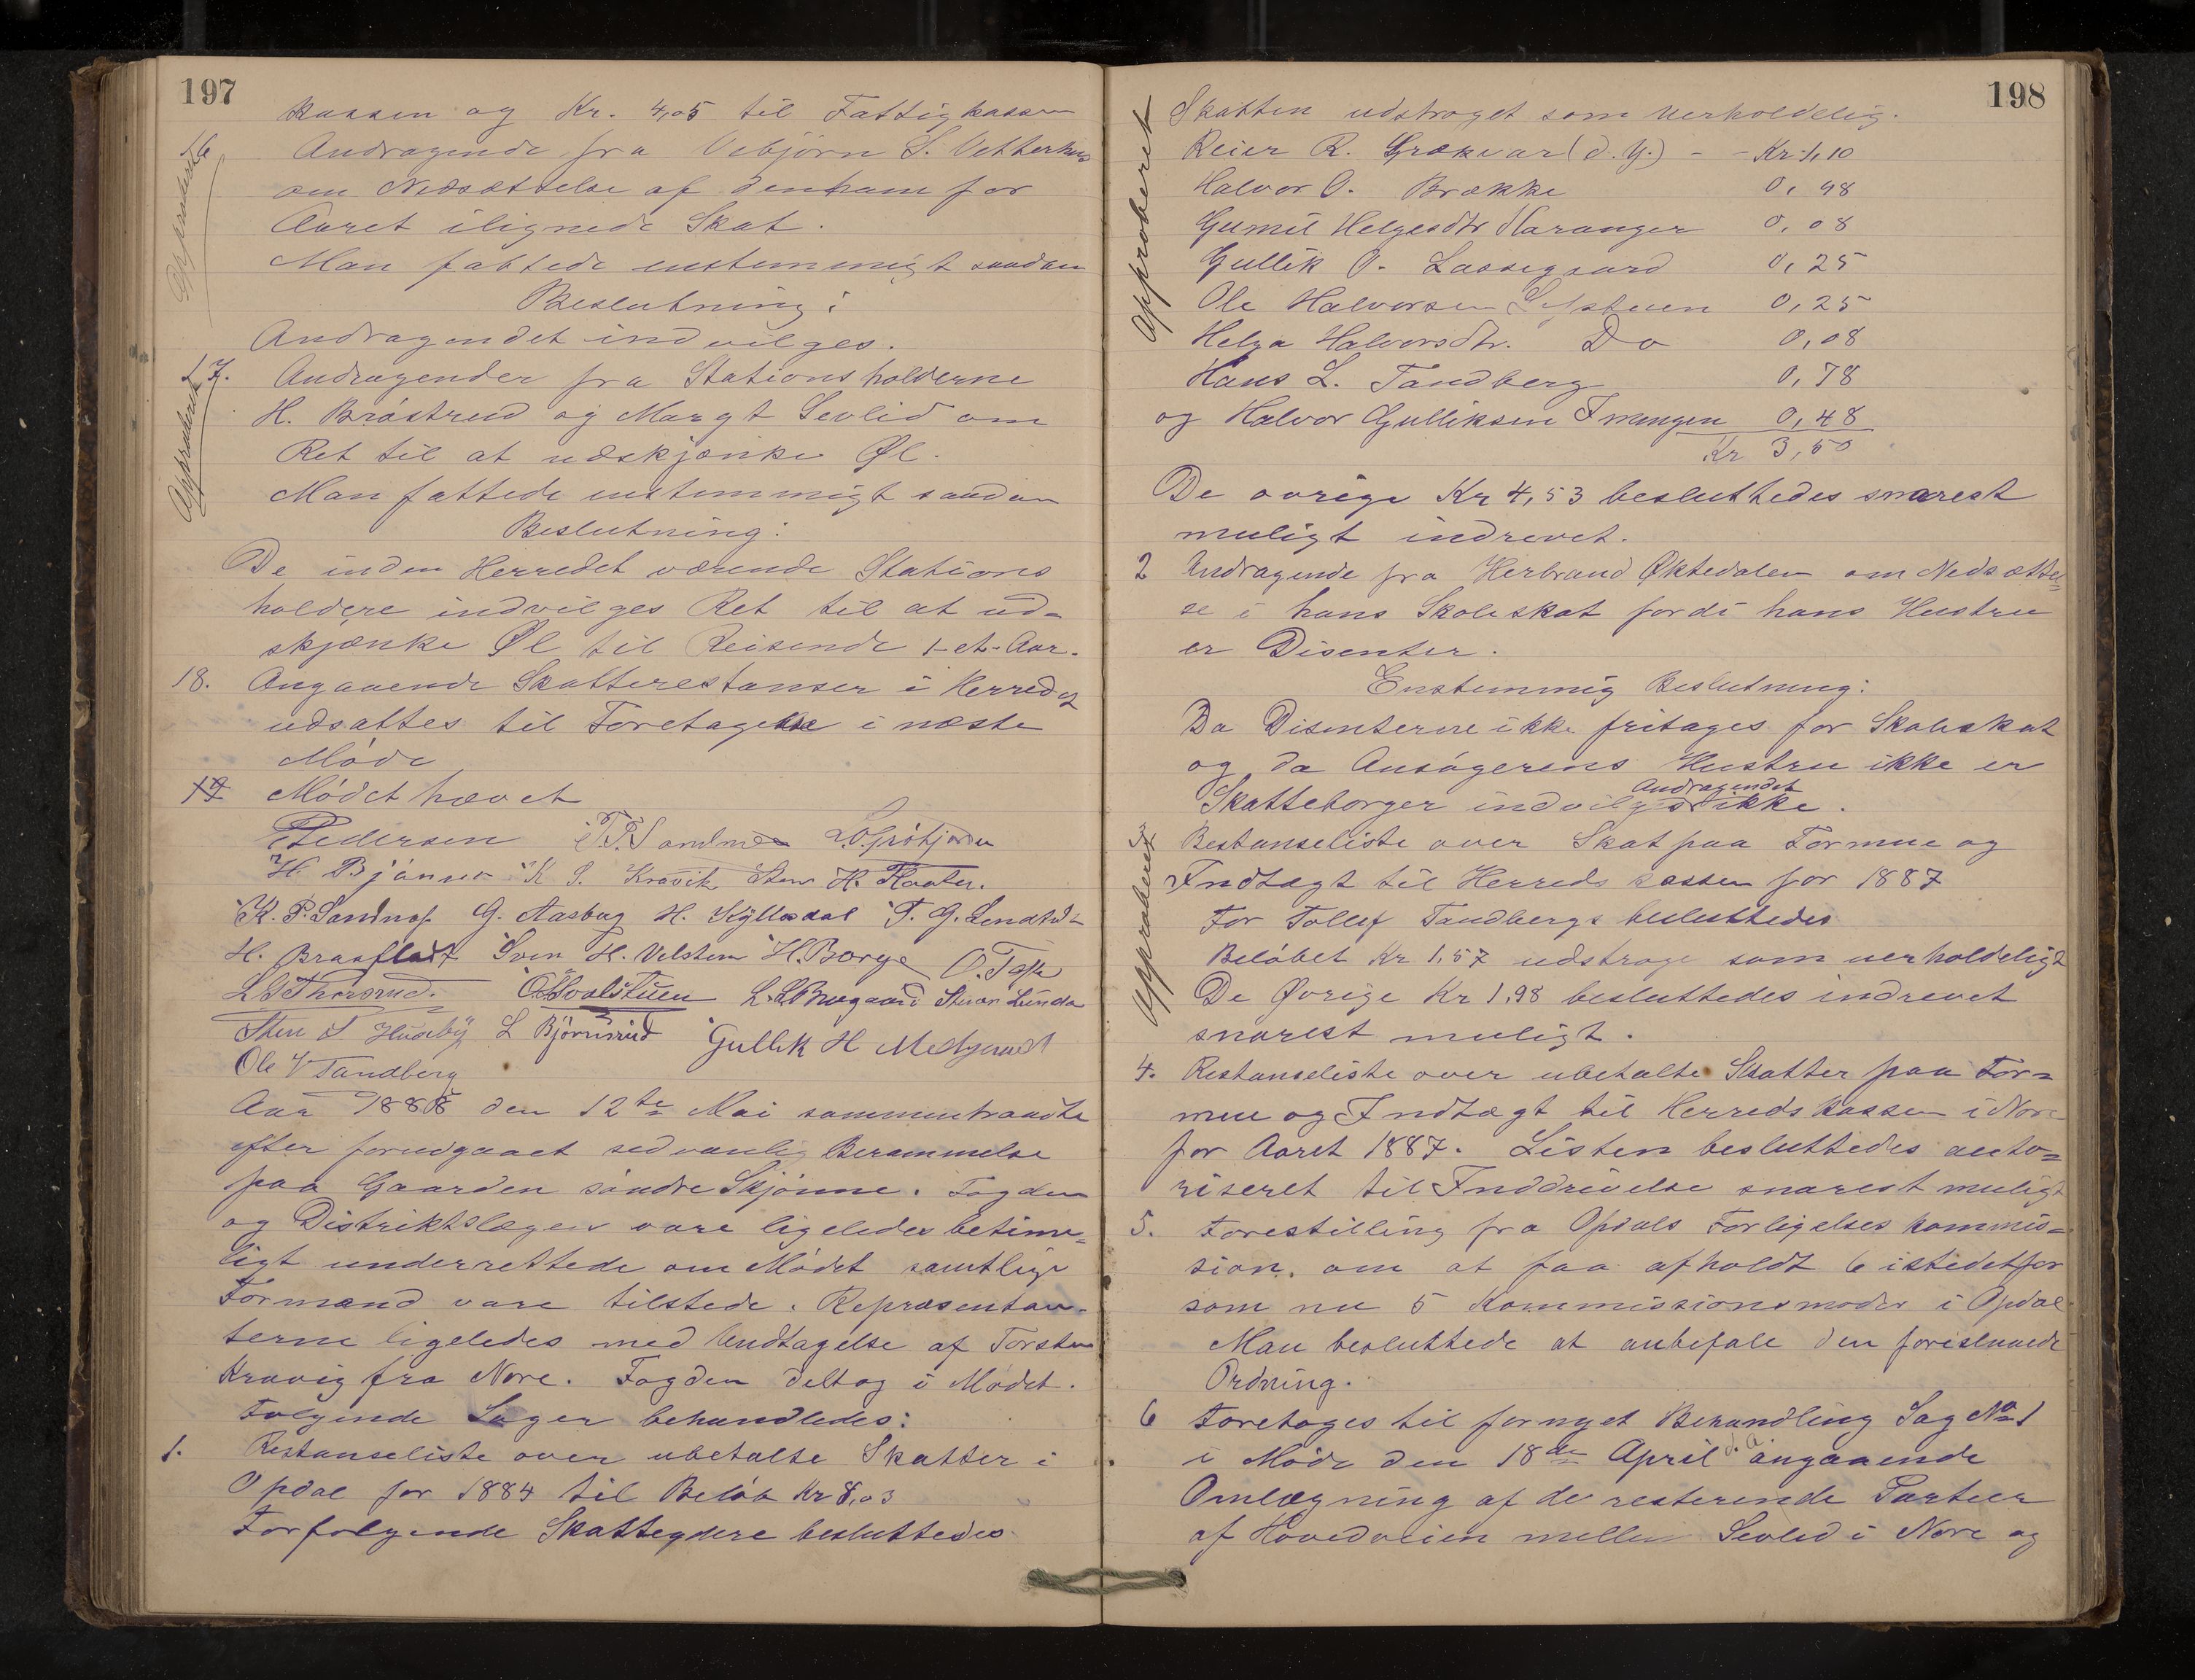 197
kassen og Kr. 4,05 til Fattigkassen
16 Andragende fra Vebjørn S. Vetterhus
om Nedsættelse af den ham for
Aaret ilignede Skat.
Man fattede enstemmigt saadan
Beslutning:
Andragendet indvilges.
17. Andragender fra Stationsholderne
H. Bråstrud og Margt Sevlid om
Ret til at udskjænke Øl.
Approberet
Man fattede enstemmigt saadan
Beslutning:
De inden Herredet værende Stations
holdere indvilges Ret til at ud-
skjænke Øl til Reisende 1-et-Aar.
18. Angaaende Skatterestanser i Herredet
udsattes til Foretagelse i næste
Møde
Mødet hævet
Pedersen T.P. L.O.
H. Bjånes K S. Kravik Sten H.
K. P. Sandnes G. Aasberg H. Kyllesdal T. G.
H. Braafladt Sven H. Velsten H. Borge O.
L G Thorsrud. O. Hvalstuen L. L. Bruegaard Steinar Lunda
Sten S Huseby L Bjørnsrud Gullik H
Ole V Tandberg
Aar 1888 den 12te Mai sammentraadte
efter forudgaaet sedvanlig Berammelse
paa Gaarden søndre Skjønne. Fogden
og Distriktslægen vare ligeledes betime-
ligt underrettede om Mødet samtlige
Formænd vare tilstede. Repræsentan-
terne ligeledes med Undtagelse af Torsten
Kravig fra Nore. Fogden deltog i Mødet.
Følgende Sager behandledes:
1. Restanseliste over ubetalte Skatter i
Opdal for 1884 til Beløb Kr 8,03
For følgende Skatteydere besluttedes
198
Skatten udstraget som uerholdelig.
Approberet
Reier R. Grøkvar (d. y.) - - Kr. 1,10
Halvor O. Brække 0,48
Gumil Helgesdtr Haranger 0,08
Gullik O. Lassegaard 0,25
Ole Halvorsen 0,25
Helga Halvorsdtr. Do 0,08
Hans L. Tandberg 0,78
og Halvor Gulliksen Imingen 0,48
Kr 3,50
De øvrige Kr 4,53 besluttedes snarest
muligt indrevet.
2 Andragende fra Herbrand Øktedalen om Nedsættel=
se i hans Skoleskat fordi hans Hustru
er Disenter.
Enstemmig Beslutning:
Da Disenterne ikke fritages for Skoleskat
og da Ansøgerens Hustru ikke er
Skatteborger indvilges Andragendet ikke.
Approberet
Restanseliste over Skat paa Formue og
Indtægt til Herredskassen for 1887
For Tollef Tandbergs besluttedes
Beløbet Kr 1,57 udstrage som uerholdeligt
De Øvrige Kr 1,98 besluttedes indrevet
snarest muligt.
4. Restanseliste over ubetalte Skatter paa For=
mue og Indtægt til Herredskassen i Nore
for Aaret 1887. Listen besluttedes auto=
riseret til Inddrivelse snarest muligt
5. Forestilling fra Opdals Forligelses kommis=
sion, om at faa afholdt 6 istedetfor
som nu 5 Kommissionsmøder i Opdal
Man besluttede at anbefale den foreslaaede
Ordning.
6 Foretoges til fornyet Behandling Sag No 1
i Møde den 18de April d. A angaaende
Omlægning af de resterende Partier
af Hovedveien mellem Sevled i Nore og